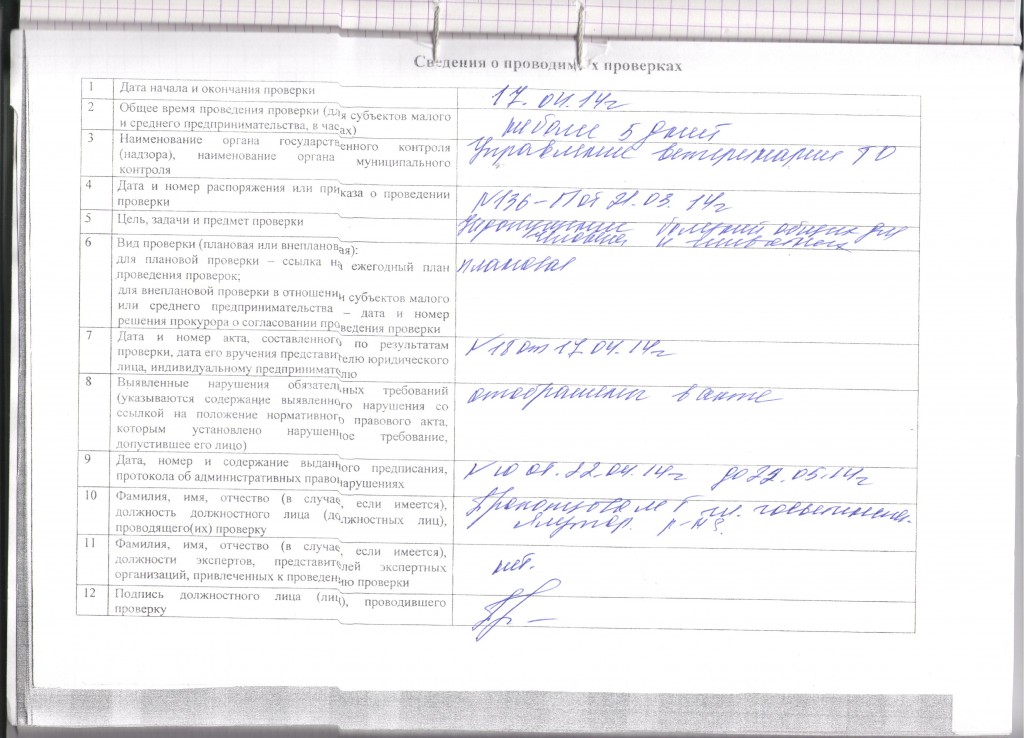 Сведения о проводимых проверках
1 Дата начала и окончания проверки 17.04.14г
2 Общее время проведения проверки (для субъектов малого не более 5 дней
и среднего предпринимательства, в часах)
3 Наименование органа государственного контроля Управление ветеринарии ТО
(надзора), наименование органа муниципального
контроля
4 Дата и номер распоряжения или приказа о проведении N136-П от 21.03.14г
проверки
5 Цель, задачи и предмет проверки Недопущение болезней общих для
человека и животных
6 Вид проверки (плановая или внеплановая): плановая
для плановой проверки – ссылка на ежегодный план
проведения проверок;
для внеплановой проверки в отношении субъектов малого
или среднего предпринимательства – дата и номер
решения прокурора о согласовании проведения проверки
7 Дата и номер акта, составленного по результатам N18 от 17.04.14г
проверки, дата его вручения представителю юридического
лица, индивидуальному предпринимателю
8 Выявленные нарушения обязательных требований отображены в акте
(указываются содержание выявленного нарушения со
ссылкой на положение нормативного правового акта,
которым установлено нарушенное требование,
допустившее его лицо)
9 Дата, номер и содержание выданного предписания, N10 от 22.04.14г до 22.05.14г
протокола об административных правонарушениях
10 Фамилия, имя, отчество (в случае, если имеется), гл. госветинспек.
должность должностного лица (должностных лиц), Ялутор. р-на
проводящего(их) проверку
11 Фамилия, имя, отчество (в случае, если имеется), нет.
должности экспертов, представителей экспертных
организаций, привлеченных к проведению проверки
12 Подпись должностного лица (лиц), проводившего
проверку